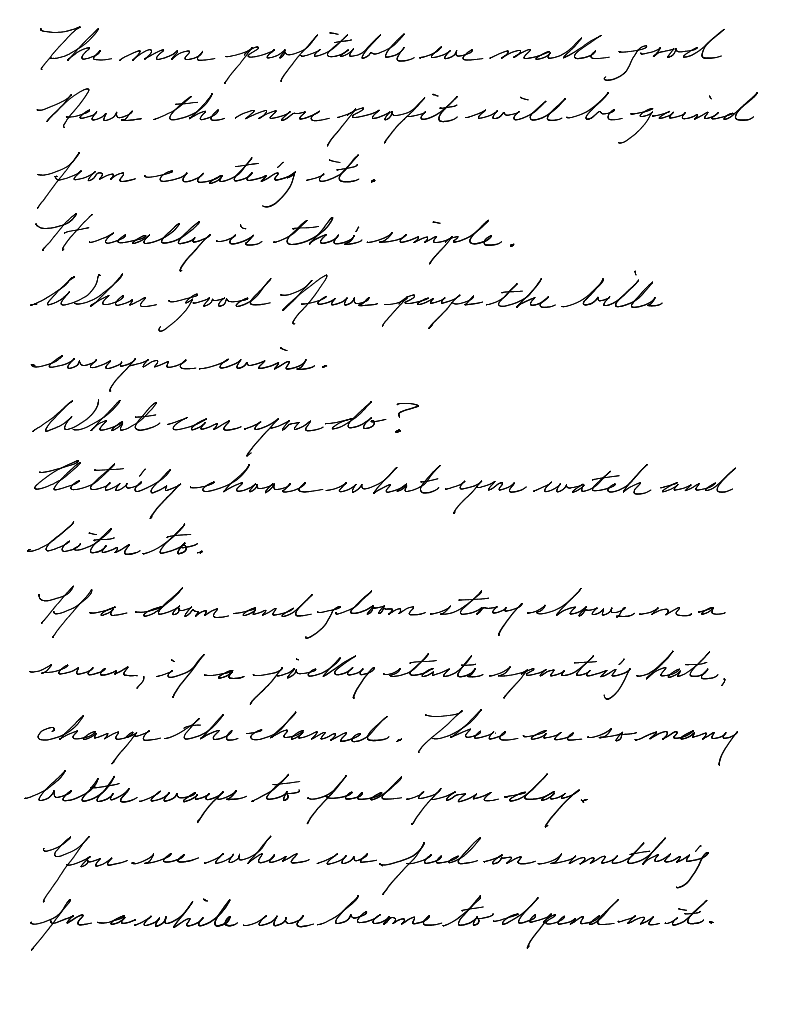 The more profitable we make good
News the more profit will be gained
from creating it.
It really is this simple.
When good News pays the bills
everyone wins.
What can you do?
Actively choose what you watch and
listen to.
If a doom and gloom story shows on a
screen, if a jockey starts spouting hate,
change the channel. There are so many
better ways to feed your day.
You see when we feed on something
for a while we become to depend on it.